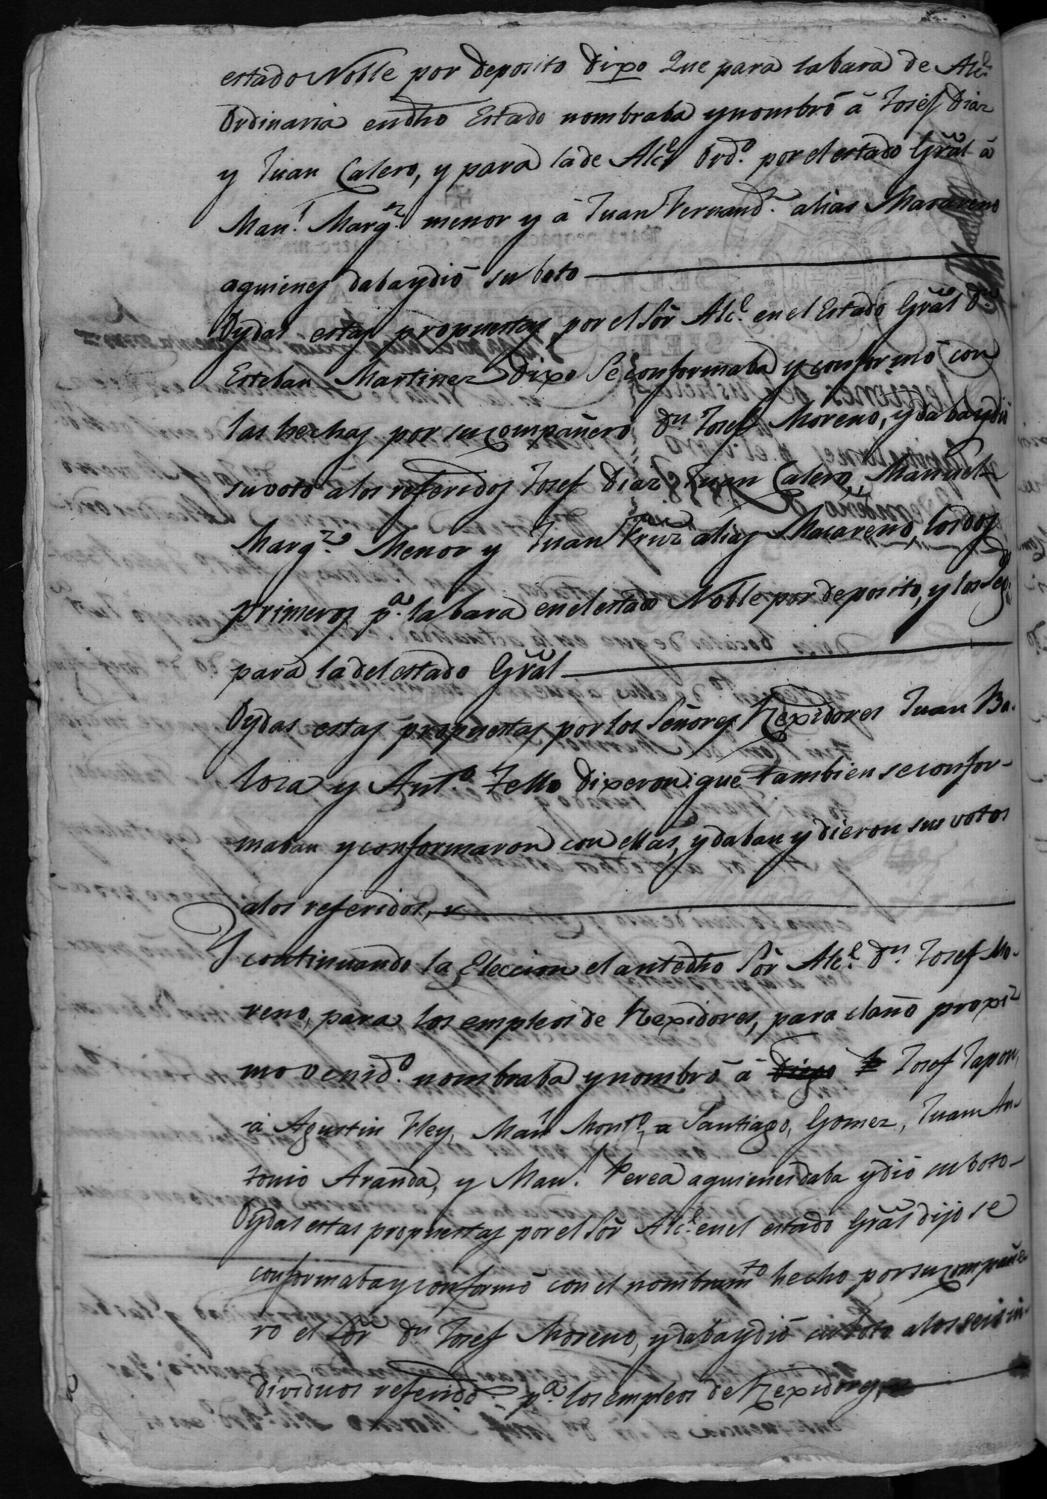 estado Noble por deposito dixo Que para la bara de Alc.e
Ordinaria en dho Estado nombraba y nombró á Josef Diaz
y Juan Calero, y para la de Alc.e Ord.o por el estado Grãl á
Man.l Marq.z menor y á Juan Fernand.z alias Macareno
aquienes daba y dió su boto
Oydas estas propuestas, por el Sõr Alc.e en el Estado Grãl D.n
Esteban Martinez Dixo Se conformaba y conformó con
las hechas por su compañero D.n Josef Moreno, y daba y dió
su voto á los referidos Josef Diaz Juan Calero, Manuel
Marq.z Menor y Juan alias Macareno, los dos
primeros p.a la bara en el estado Noble por deposito, y los
para la del estado Grãl
Oydas estas propuestas por los Señores Rexidores Juan Ba-
y Ant.o Tello dixeron que tambien se confor-
maban y conformaron con ellas, y daban y dieron sus votos
a los referidos,
Y continuando la Eleccion el antedho Sõr Alc.e D.n Josef Mo-
reno, para los empleos de Rexidores, para el año proxi-
mo venid.o nombraba y nombró á Josef
á Agustin Man.l Mont.o, a Santiago, Gomez, Juan An-
tonio Aranda, y Man.l Perea aquienes daba y dió su boto
Oydas estas propuestas por el Sõr Alc.e en el estado Grãl dijo se
conformaba y conformó con el nombram.to hecho por su compañe-
ro el Sõr D.n Josef Moreno, y daba y dió su boto a los seis in-
dividuos referidos p.a los empleos de Rexidores,